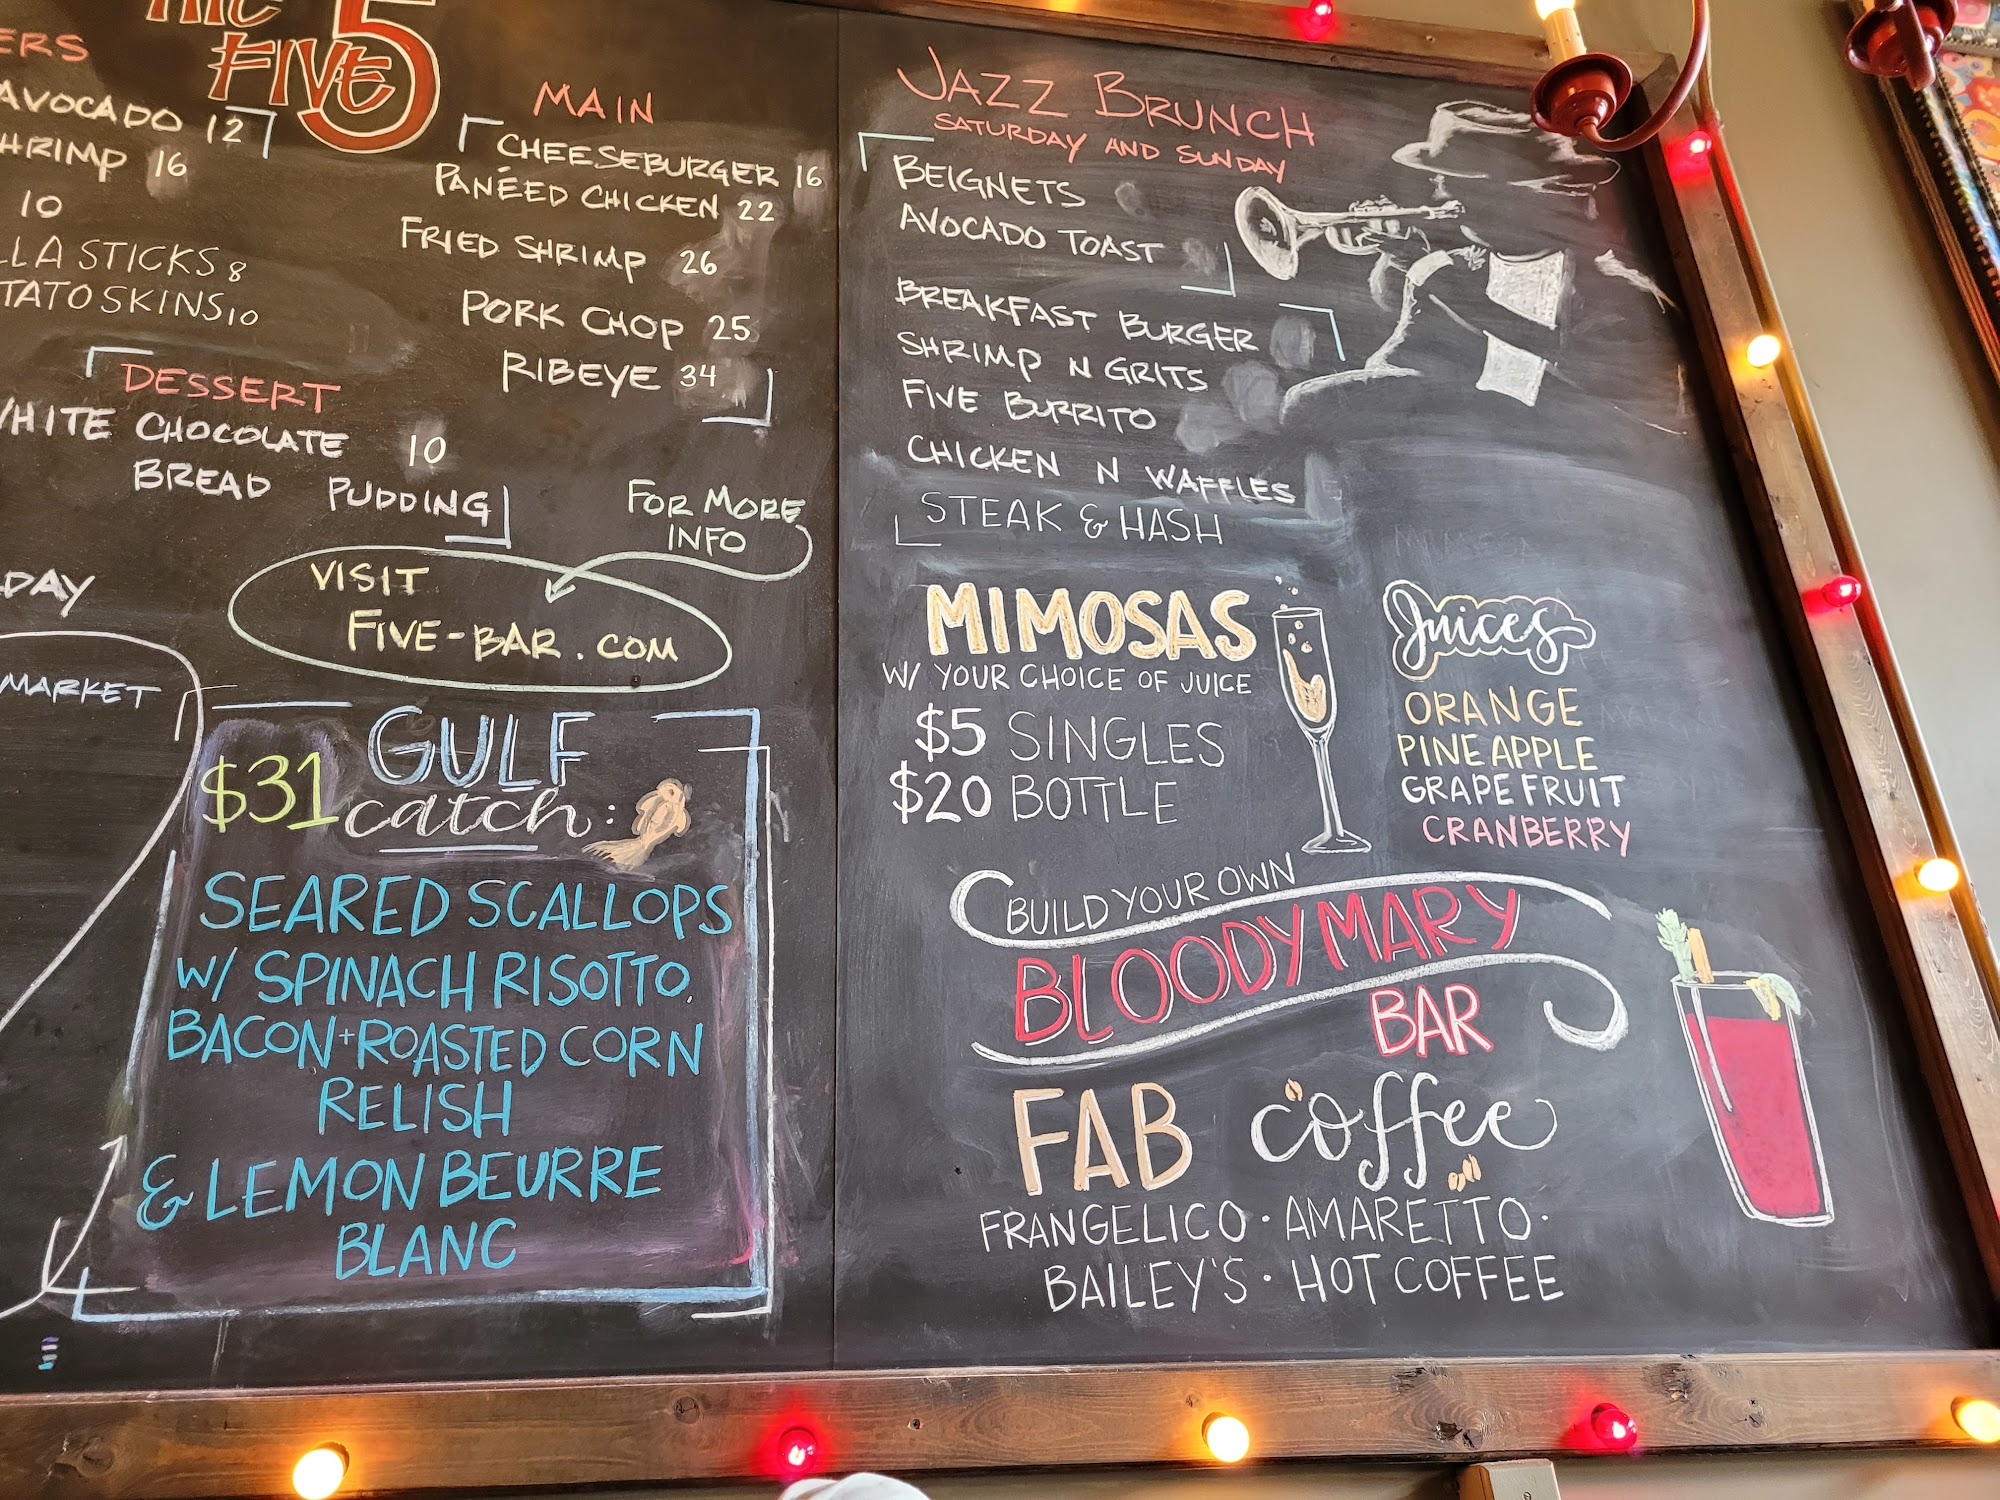 FIVE 5
AVOCADO 12
16
10
STICKS 8
SKINS 10
DESSERT
CHOCOLATE 10
BREAD PUDDING
MAIN
CHEESEBURGER 16
PANÉED CHICKEN 22
FRIED SHRIMP 26
PORK CHOP 25
RIBEYE 34
FOR MORE
INFO
VISIT
FIVE-BAR.COM
MARKET
$31 GULF
catch:
SEARED SCALLOPS
W/ SPINACH RISOTTO,
BACON + ROASTED CORN
RELISH
& LEMON BEURRE
BLANC
JAZZ BRUNCH
SATURDAY AND SUNDAY
BEIGNETS
AVOCADO TOAST
BREAKFAST BURGER
SHRIMP N GRITS
FIVE BURRITO
CHICKEN N WAFFLES
STEAK & HASH
MIMOSAS
W/ YOUR CHOICE OF JUICE
$5 SINGLES
$20 BOTTLE
Juices
ORANGE
PINEAPPLE
GRAPEFRUIT
CRANBERRY
BUILD YOUR OWN
BLOODY MARY
BAR
FAB coffee
FRANGELICO · AMARETTO ·
BAILEY'S · HOT COFFEE